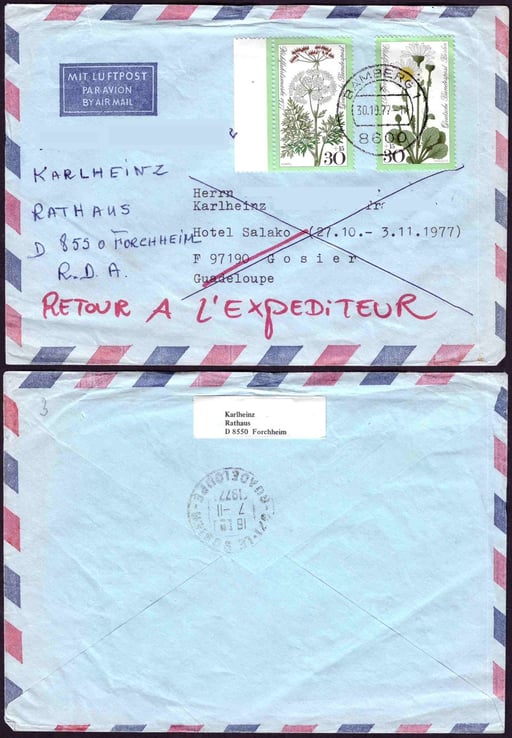 MIT LUFTPOST
PAR AVION
BY AIR MAIL
30
30
BAMBERG
30.10.77
8600
KARLHEINZ
RATHAUS
D 8550 FORCHHEIM
R.D.A.
Herrn
Karlheinz
Hotel Salako (27.10.- 3.11.1977)
F 97190 Gosier
Guadeloupe
RETOUR A L'EXPEDITEUR
3
Karlheinz
Rathaus
D 8550 Forchheim
18 H
7 -11
1977
GUADELOUPE